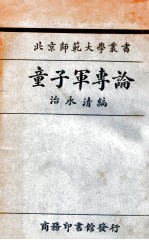 北京師範大學叢書
童子軍專論
治永清編
商務印書館發行